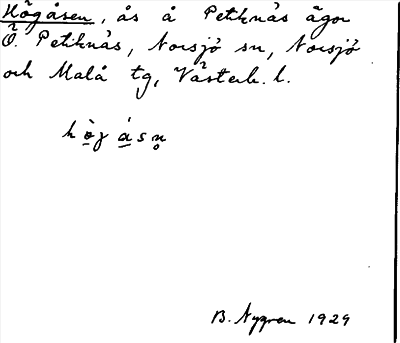 Högåsen, ås å Petiknäs ägor
Ö. Petiknäs, Norsjö sn, Norsjö
och Malå tg, Västerb. l.
hò̱ʒ á̱sn̥
B. Nygren 1929